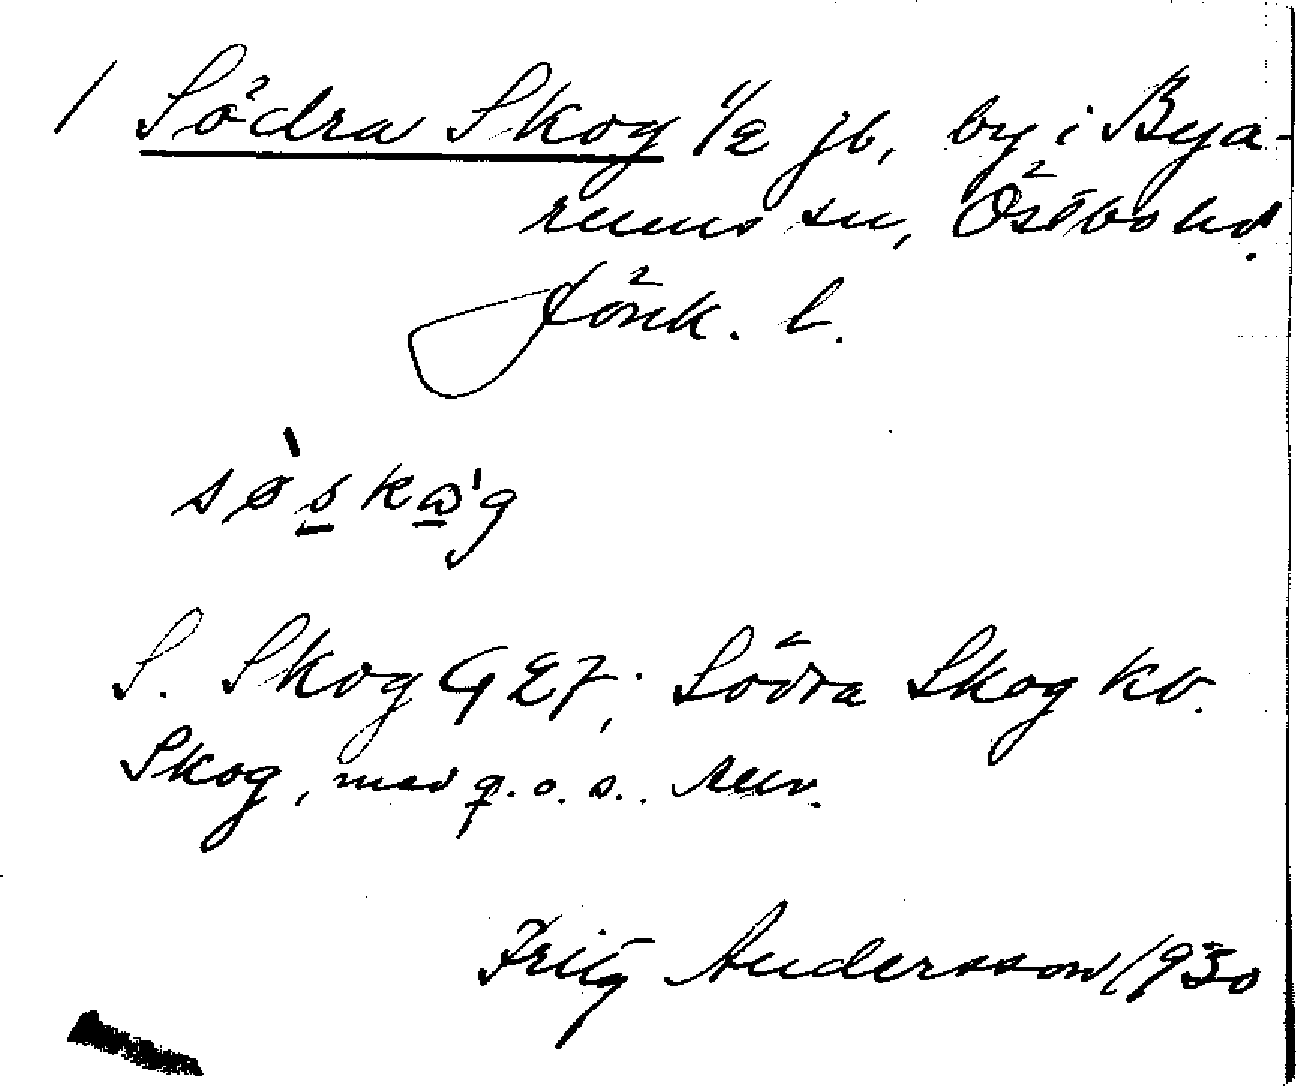 / Södra Skog 1/2 jb, by i Bya-
rums sn, Östbo hd.
Jönk. l.
S. Skog GEJ; Södra Skog kv.
Skog, med q.o.s. Mur.
Fritz Andersson 1930